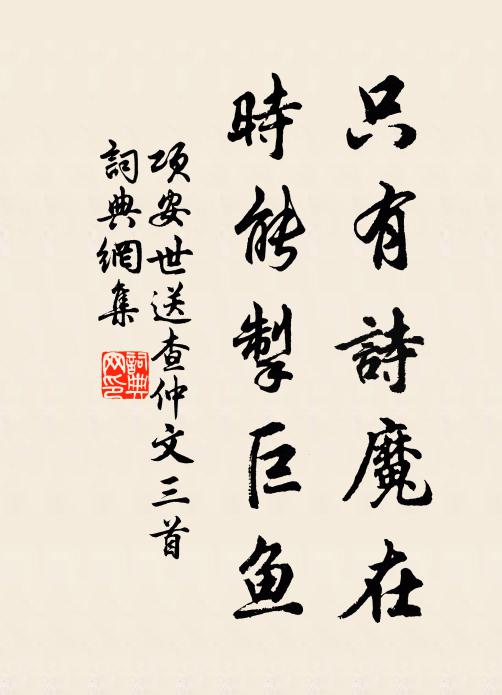 只有詩魔在
時能掣巨鱼
項安世送查仲文三首
詞典網集
詞典網印